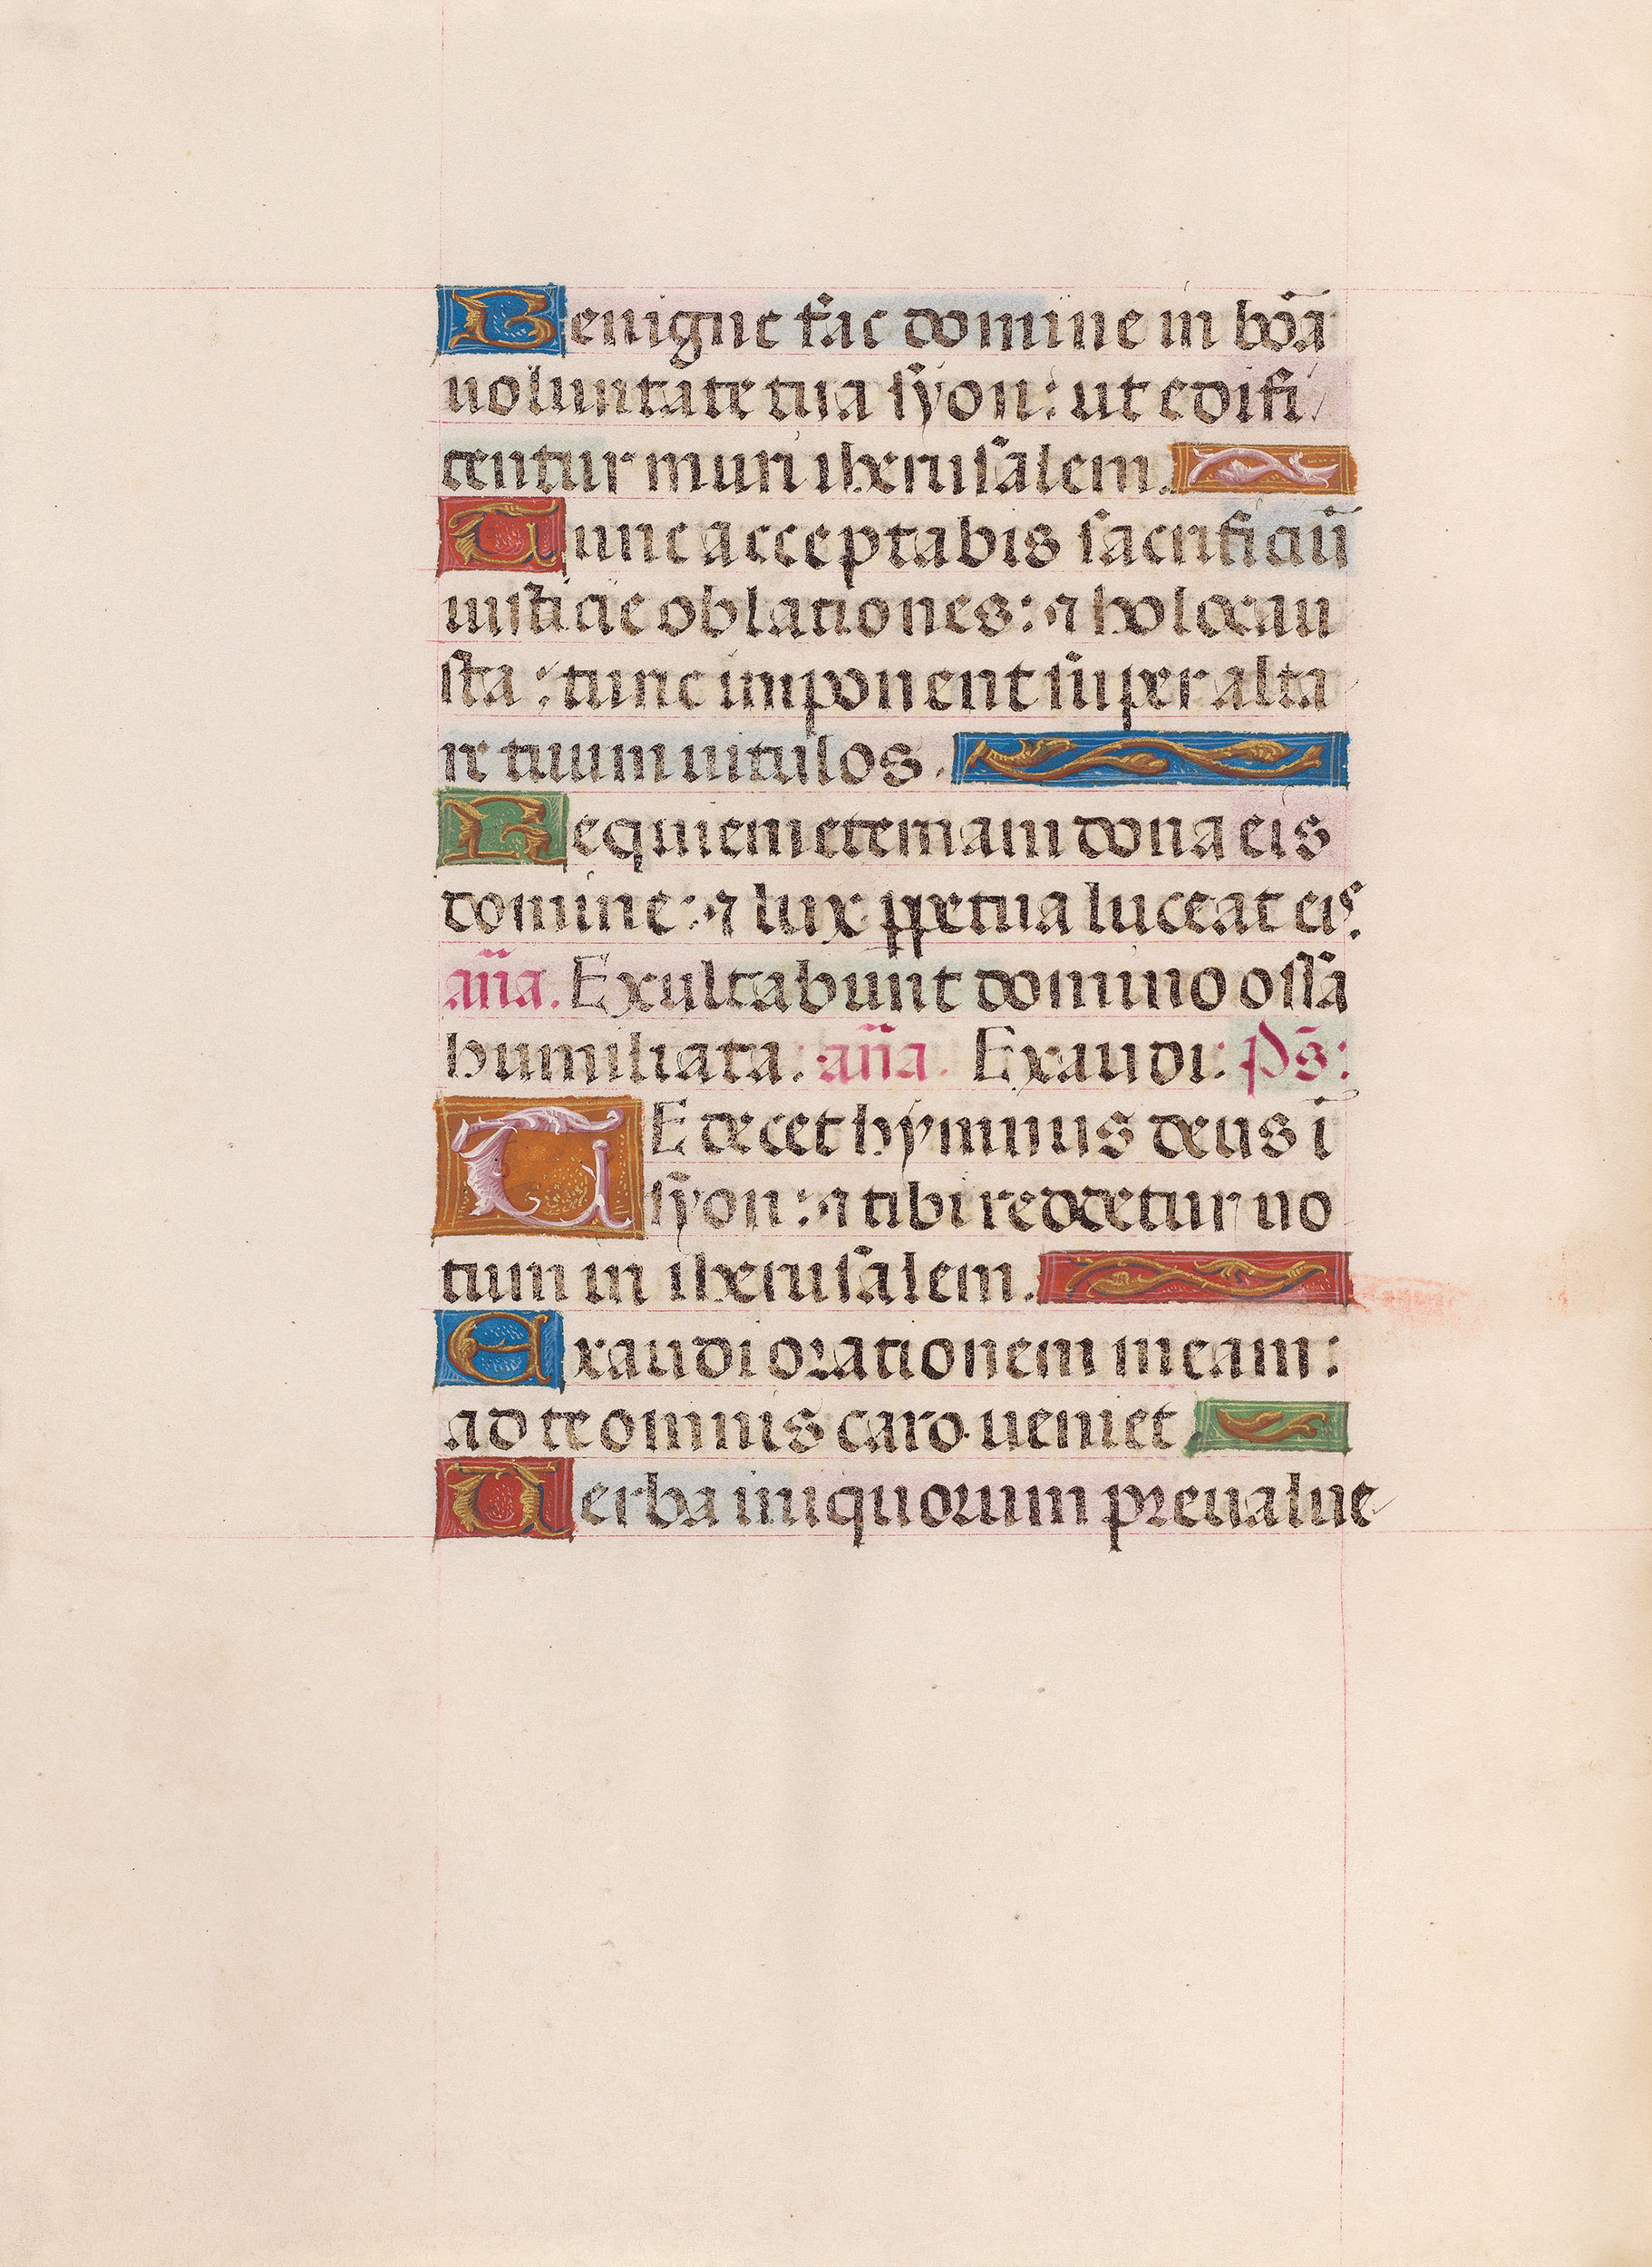 Benigne fac domine in bōa
uoluntate tua syon: ut edifi
centur muri iherusalem.
Tunc acceptabis sacrificiū
iusticie oblationes: ⁊ holocau
sta: tunc imponent super alta
re tuum uitulos.
Requiem eternam dona eis
domine: ⁊ lux ꝑpetua luceat eis.
añа. Exultabunt domino ossa
humiliata. aña. Exaudi: Ps̄:
TE decet hymnus deus ī
syon: ⁊ tibi reddetur uo
tum in iherusalem.
Exaudi orationem meam:
ad te omnis caro ueniet
Uerba iniquorum preualue